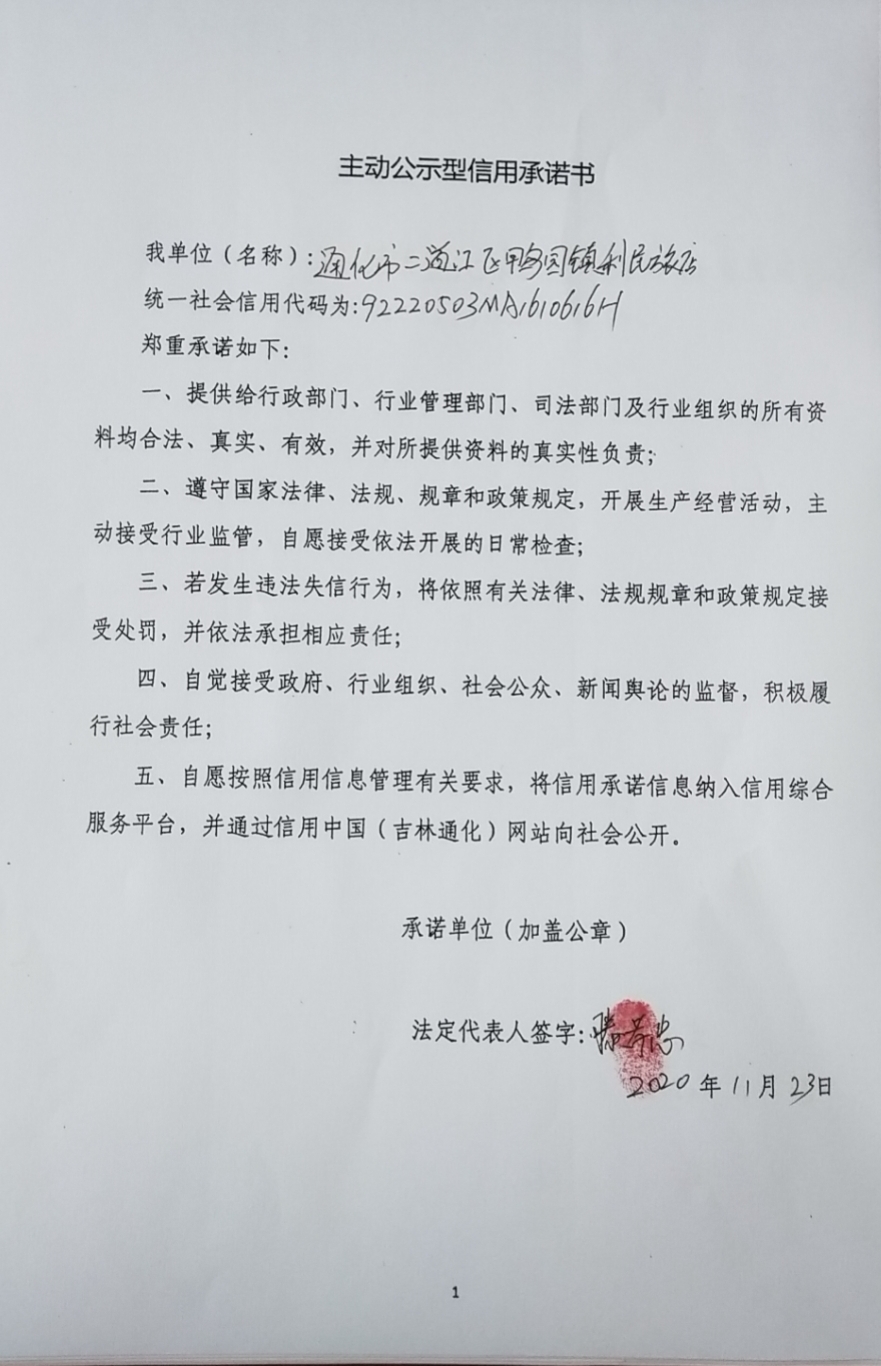 主动公示型信用承诺书
我单位（名称）：通化市二道江区鸭园镇利民旅店
统一社会信用代码为：92220503MA1610616H
郑重承诺如下：
一、提供给行政部门、行业管理部门、司法部门及行业组织的所有资
料均合法、真实、有效，并对所提供资料的真实性负责；
二、遵守国家法律、法规、规章和政策规定，开展生产经营活动，主
动接受行业监管，自愿接受依法开展的日常检查；
三、若发生违法失信行为，将依照有关法律、法规规章和政策规定接
受处罚，并依法承担相应责任；
四、自觉接受政府、行业组织、社会公众、新闻舆论的监督，积极履
行社会责任；
五、自愿按照信用信息管理有关要求，将信用承诺信息纳入信用综合
服务平台，并通过信用中国（吉林通化）网站向社会公开。
承诺单位（加盖公章）
法定代表人签字：
2020年11月23日
1